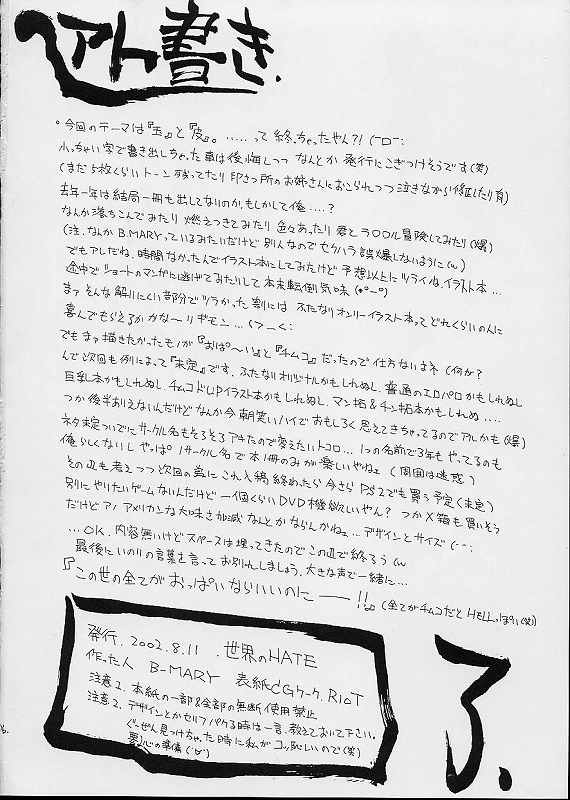 アト書き.
。今回のテーマは『玉』と『皮』。……って終っちゃったやん?! (-ロ-;
小っちゃい字で書き出しちゃった事は後悔しつつ なんとか 発行にこぎつけそうです(笑)
(まだ5枚くらいトーン残ってたり 印さつ所のお姉さんにおこられつつ泣きながら修正したり有)
去年一年は結局一冊も出してないのか、もしかして俺….?
なんか落ちこんでみたり 燃えつきてみたり 色々あったり 愛とラ〇〇ル冒険してみたり(爆)
(注、なんか B.MARYっているみたいだけど 別人なのでセクハラ誤爆しないように(w)
でもアレだね、時間なかったんでイラスト本にしてみたけど 予想以上にツライね、イラスト本…
途中でショートのマンガに逃げてみたりして 本末転倒気味
まァ そんな解りにくい部分でツラかった 割には ふたなりオンリーイラスト本って どれくらいの人に
喜んでもらえるかなーりギモン…
でも まァ 描きたかったもノが『おぱ〜い』と『チムコ』だったので 仕方ないよネ (何が?
んで次回も例によって『未定』です、ふたなりオリジナルかもしれぬし、普通のエロパロかもしれぬし
巨乳本かもしれぬし、チムコドUPイラスト本かもしれぬし、マン拓&チン拓本かもしれぬ….
つか後半ありえないんだけど なんか今 朝 笑いハイで おもしろく 思えてきちゃってるのでアルかも (爆)
ネタ未定ついでにサークル名もそろそろアキたので変えたいトコロ… 1つの名前で3年も やってるのも
俺らしくないし やっぱ 1サークル名で 本1冊のみが 楽しいやねェ (周囲は迷惑)
その辺も考えつつ次回の為に これ入稿終わったら 今さら PS2でも買う予定 (未定)
別にやりたいゲームなんだけど 一個くらいDVD機欲しいやん? つかX箱も買いそう
だけど ア! アメリカンな大味さ加減 なんとかならんかねェ… デザインとサイズ (--;
…OK、内容無いけど スペースは埋ってきたのでこの辺で終ろう (w
最後に いのりの言葉を言って お別れしましょう、大きな声で一緒に…
『この世の全てがおっぱいならいいのに ――!!』 (全てがチムコだとHELLっぽい(笑)
発行. 2002.8.11 .世界のHATE
作った人 B-MARY 表紙CGワーク. RIOT
注意1. 本紙の一部&全部の無断 使用禁止
注意2. デザインとかセリフ パクる時は一言、教えておいて下さい。
ぐーぜん見つけちゃった時に私が コッ恥しいので(笑)
了.